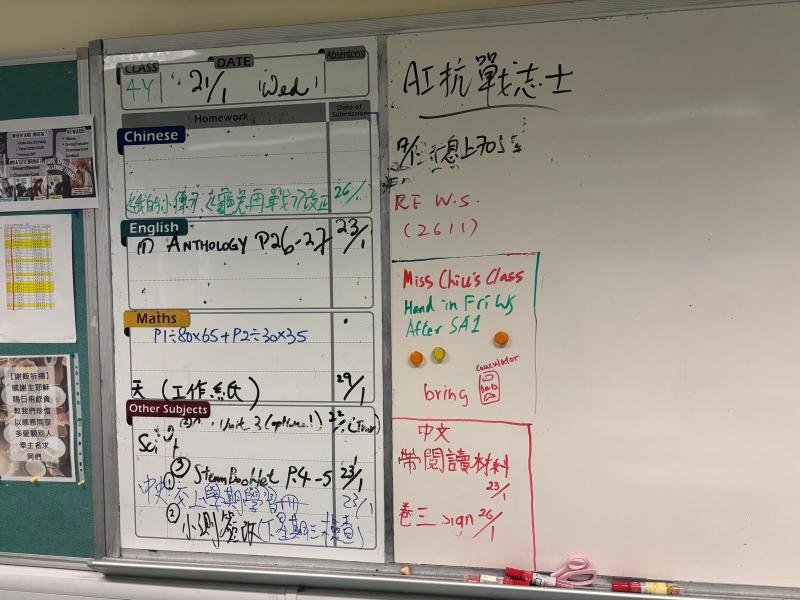 CLASS
DATE
Absentees
4Y
21/1
Wed
Homework
Date of Submission
Chinese
《我的小傳》、《龜兔再戰》改正 26/1
English
ANTHOLOGY P26-27 23/1
Maths
P1÷80×65+P2÷30×35
天 (工作紙) 29/1
Other Subjects
Unit 3
Sci
③ Steam Booklet P.4-5 23/1
① 中史 交上學期學習冊 23/1
② 小測簽改(下星期三檢查)
AI抗戰志士
RE W.S.
(26 11)
Miss Chiu's Class
Hand in Fri WS
After SA1
calculator
bring
中文
帶閱讀材料
23/1
卷三 sign 26/1
【謝飯祈禱】
感謝主耶穌
賜日用飲食
教我們珍惜
以感恩同享
多愛顧別人
奉主名求
阿們